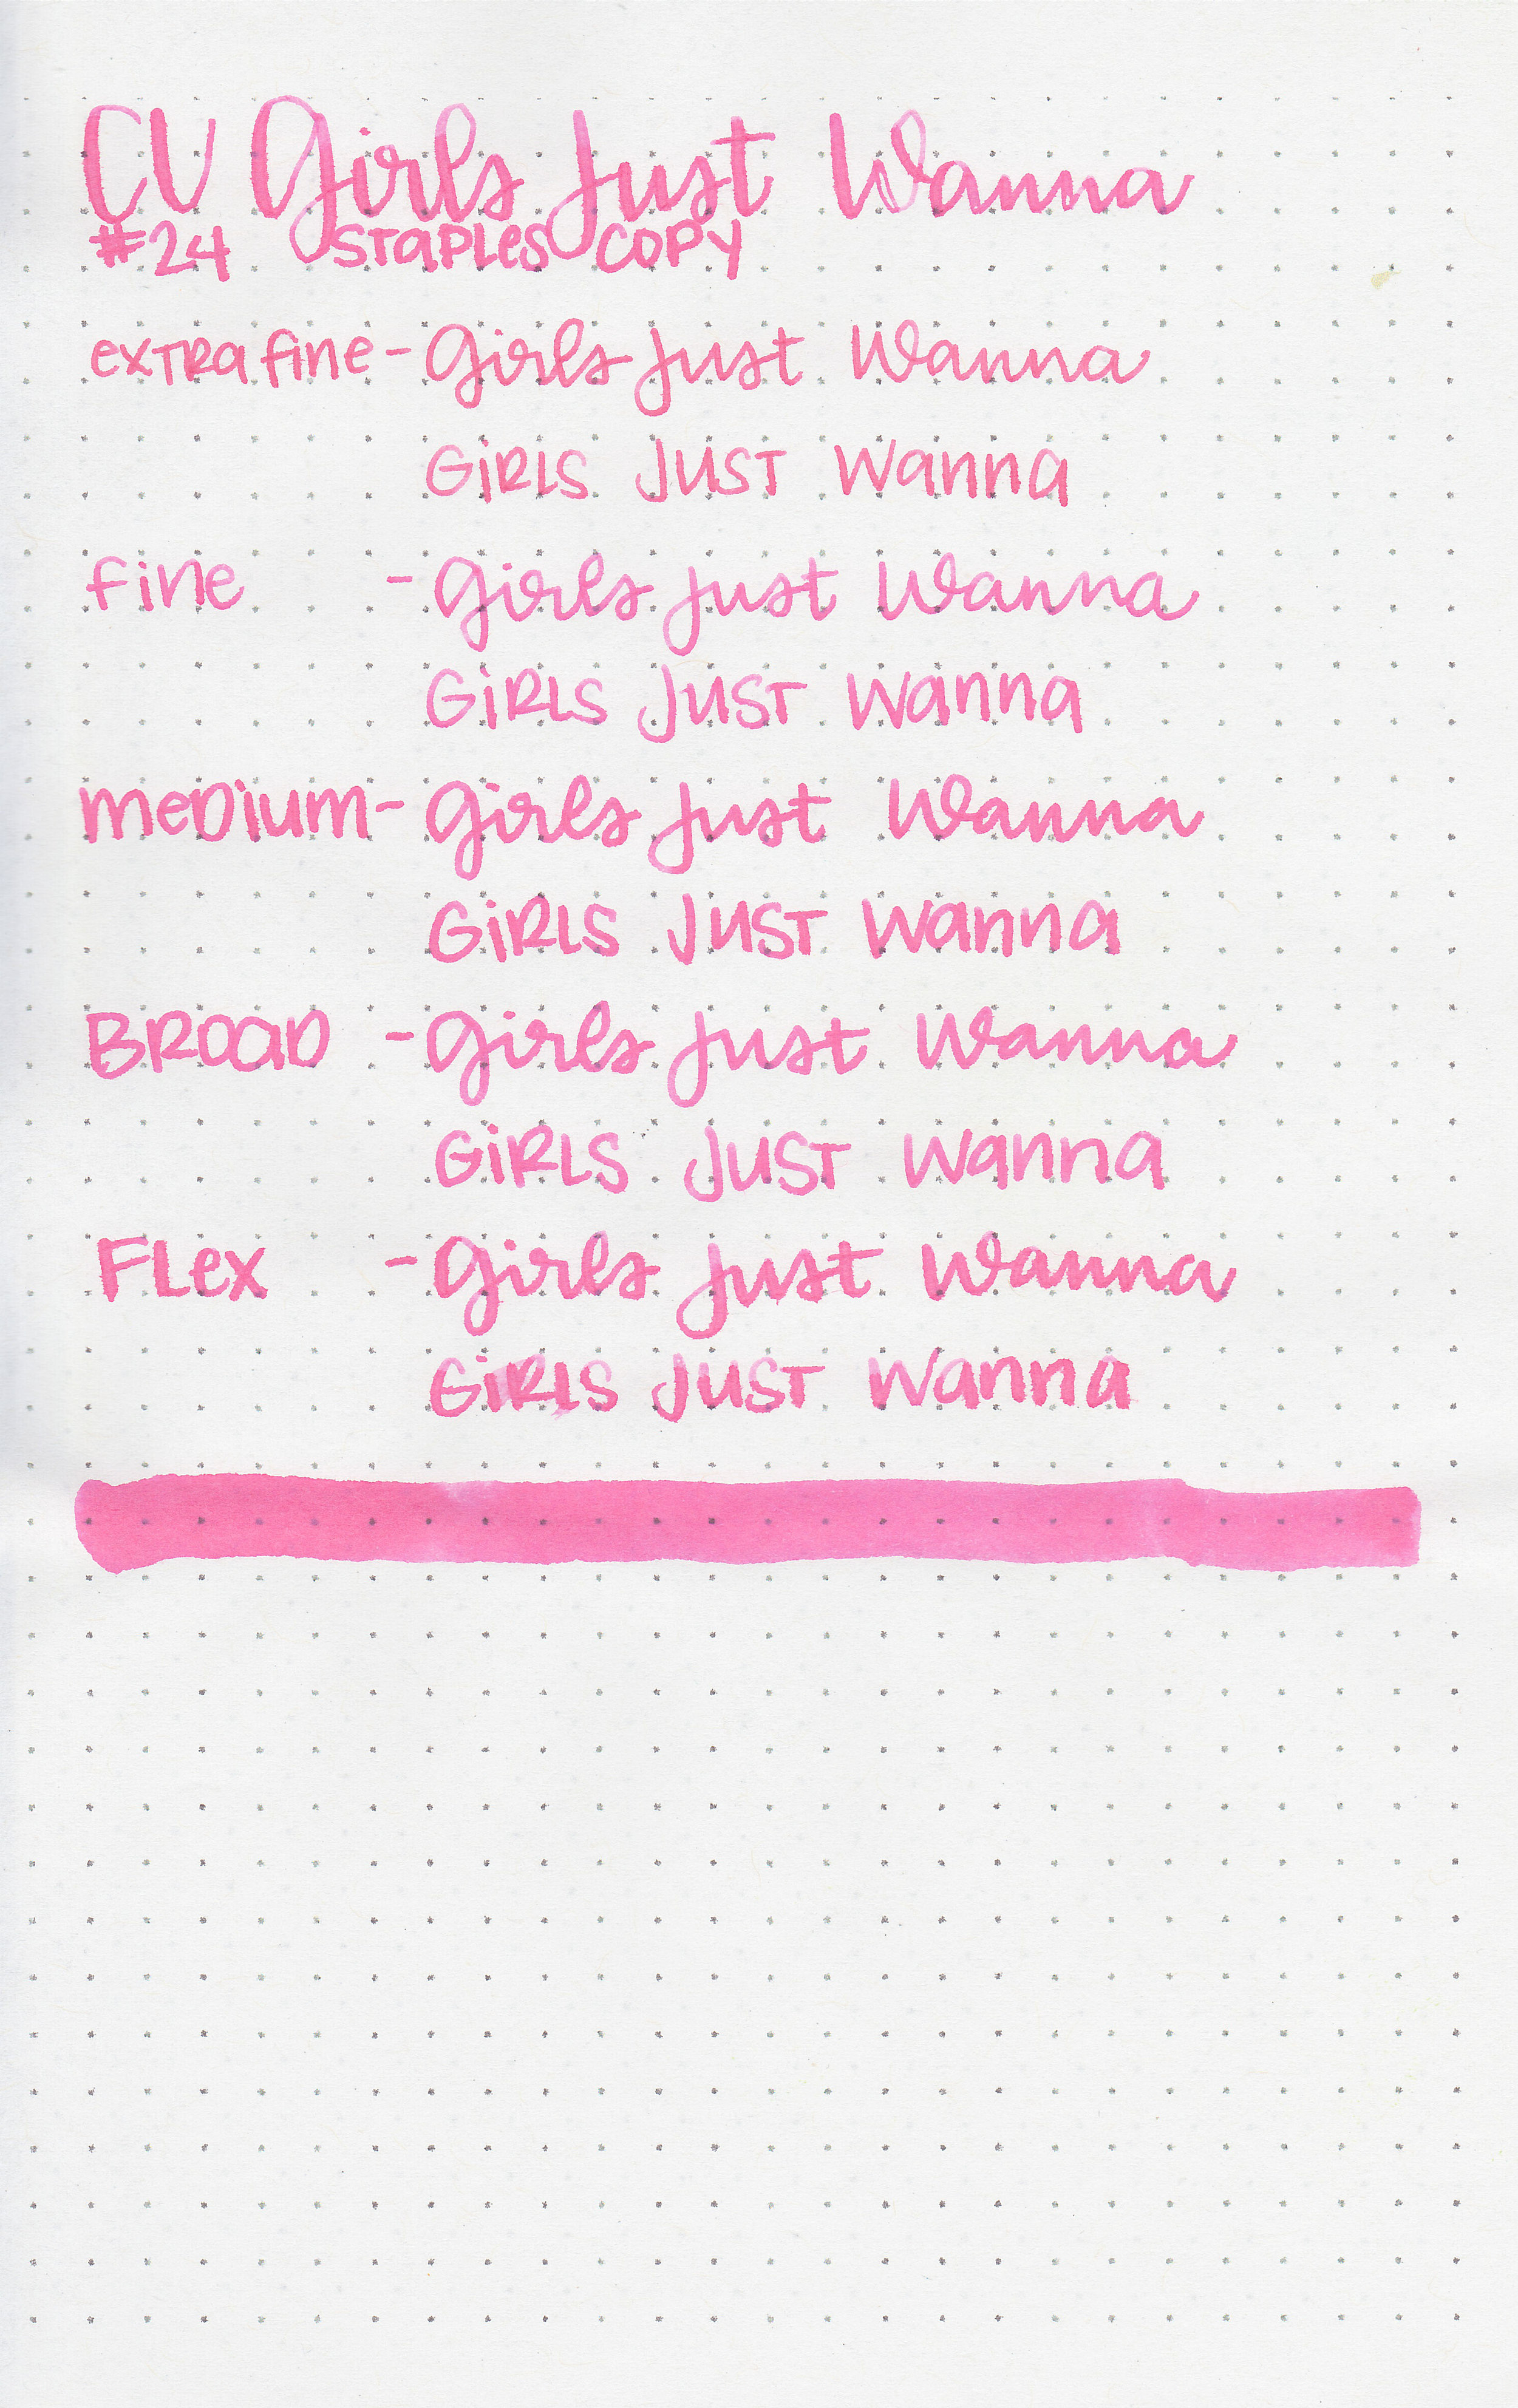 CV Girls Just Wanna
#24 STAPLES COPY
exTRa fine - Girls Just Wanna
GiRLS JUST Wanna
fine - Girls Just Wanna
GiRLS JUST Wanna
meDium - Girls Just Wanna
GiRLS JUST Wanna
BROaD - Girls Just Wanna
GiRLS JUST Wanna
FLex - Girls Just Wanna
GiRLS JUST Wanna